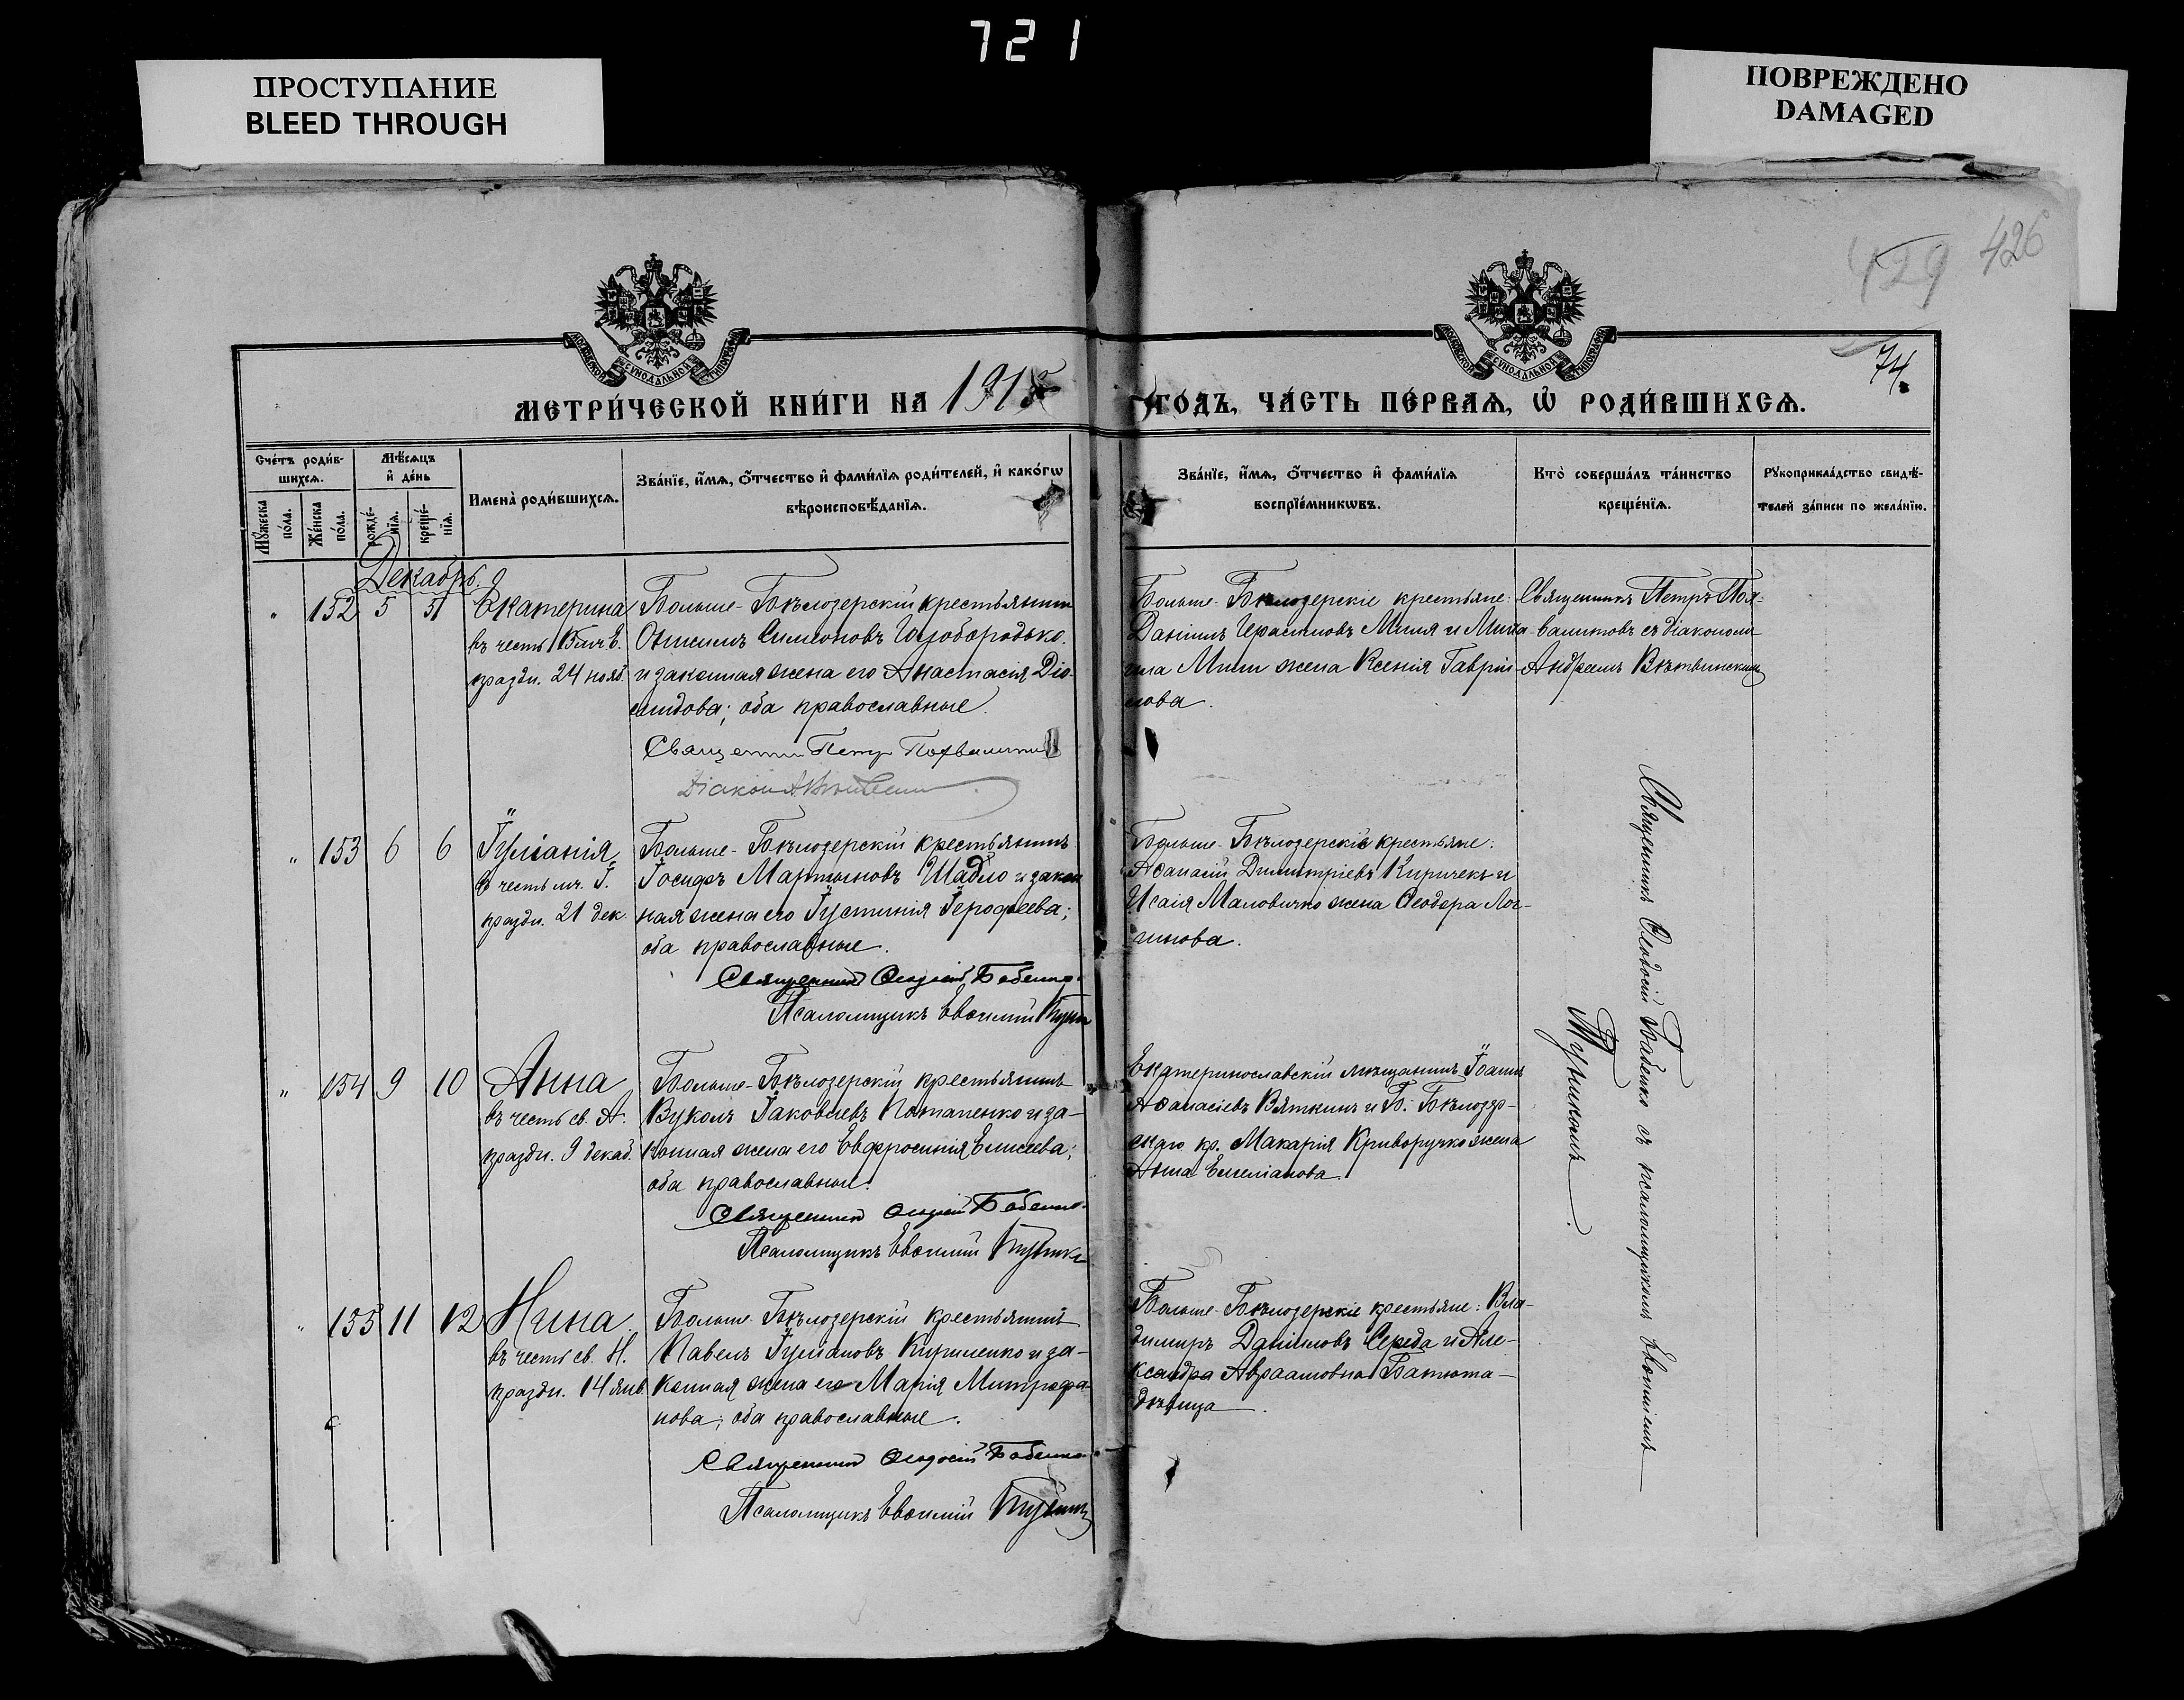 721
ПРОСТУПАНИЕ
BLEED THROUGH
ПОВРЕЖДЕНО
DAMAGED
429 426
74.
МЕТРИ́ЧЕСКОЙ КНИ́ГИ НА 1915 ГО́ДЪ, ЧА́СТЬ ПЕ́РВАѦ, Ѡ РОДИ́ВШИХСѦ.
Сче́тъ роди́в-
шихсѧ.
Мꙋ́жеска
по́ла.
Же́нска
по́ла.
Мѣ́сѧцъ
и҆ де́нь
рожде́-
нїѧ.
креще́-
нїѧ.
Имена̀ роди́вшихсѧ.
Зва́нїе, и҆́мѧ, ѻ҆́тчество и҆ фами́лїѧ роди́телей, и҆ како́гѡ
вѣроисповѣ́данїѧ.
Зва́нїе, и҆́мѧ, ѻ҆́тчество и҆ фами́лїѧ
воспрїе́мникѡвъ.
Кто̀ соверша́лъ та́инство
креще́нїѧ.
Рꙋкоприкла́дство свидѣ́-
телей за́писи по жела́нїю.
Декабрь.
" 152 5 5 Екатерина
въ честь Влмч. Е.
праздн. 24 нояб.
Больше-Бѣлозерскій крестьянинъ
Онисимъ Симеоновъ Голобородько
и законная жена его Анастасія Діо-
мидова; оба православные.
Священникъ Петръ Похвалитовъ
Діаконъ А. Вѣтвинскій
Больше-Бѣлозерскіе крестьяне:
Даніилъ Герасимовъ Миля и Миха-
ила Мили жена Ксенія Гаврii-
лова.
Священникъ Петръ Пох-
валитовъ съ діакономъ
Андреемъ Вѣтвинскимъ
" 153 6 6 Іуліанія
въ честь мч. І.
праздн. 21 дек.
Больше-Бѣлозерскій крестьянинъ
Іосифъ Мартыновъ Шабло и закон
ная жена его Іустинія Іерофеева;
оба православные.
Священникъ Ѳеодосій Бабенко
Псаломщикъ Евѳимій
Больше-Бѣлозерскіе крестьяне:
Аѳанасій Димитріевъ Киричекъ и
Исаія Маловичко жена Ѳеодора Лог-
гинова.
" 154 9 10 Анна
въ честь св. А.
праздн. 9 декаб.
Больше-Бѣлозерскій крестьянинъ
Вуколъ Іаковлевъ Потапенко и за-
конная жена его Евфросинія Елисеева;
оба православные.
Священникъ Ѳеодосій Бабенко.
Псаломщикъ Евѳимій
Екатеринославскій мѣщанинъ Іоаннъ
Аѳанасіевъ Вяткинъ и Б. Бѣлозер-
скаго кр. Макарія Криворучко жена
Анна Емеліанова
" 155 11 12 Нина
въ честь св. Н.
праздн. 14 янв.
Больше-Бѣлозерскій крестьянинъ
Павелъ Іуліановъ Кириленко и за-
конная жена его Марія Митрофа-
нова; оба православные.
Священникъ Ѳеодосій Бабенко
Псаломщикъ Евѳимій
Больше-Бѣлозерскіе крестьяне: Вла-
димиръ Даніиловъ Середа и Але-
ксандра Авраамовна Батюта-
дѣвица.
Священникъ Ѳеодосій Бабенко съ псаломщикомъ Евѳиміемъ